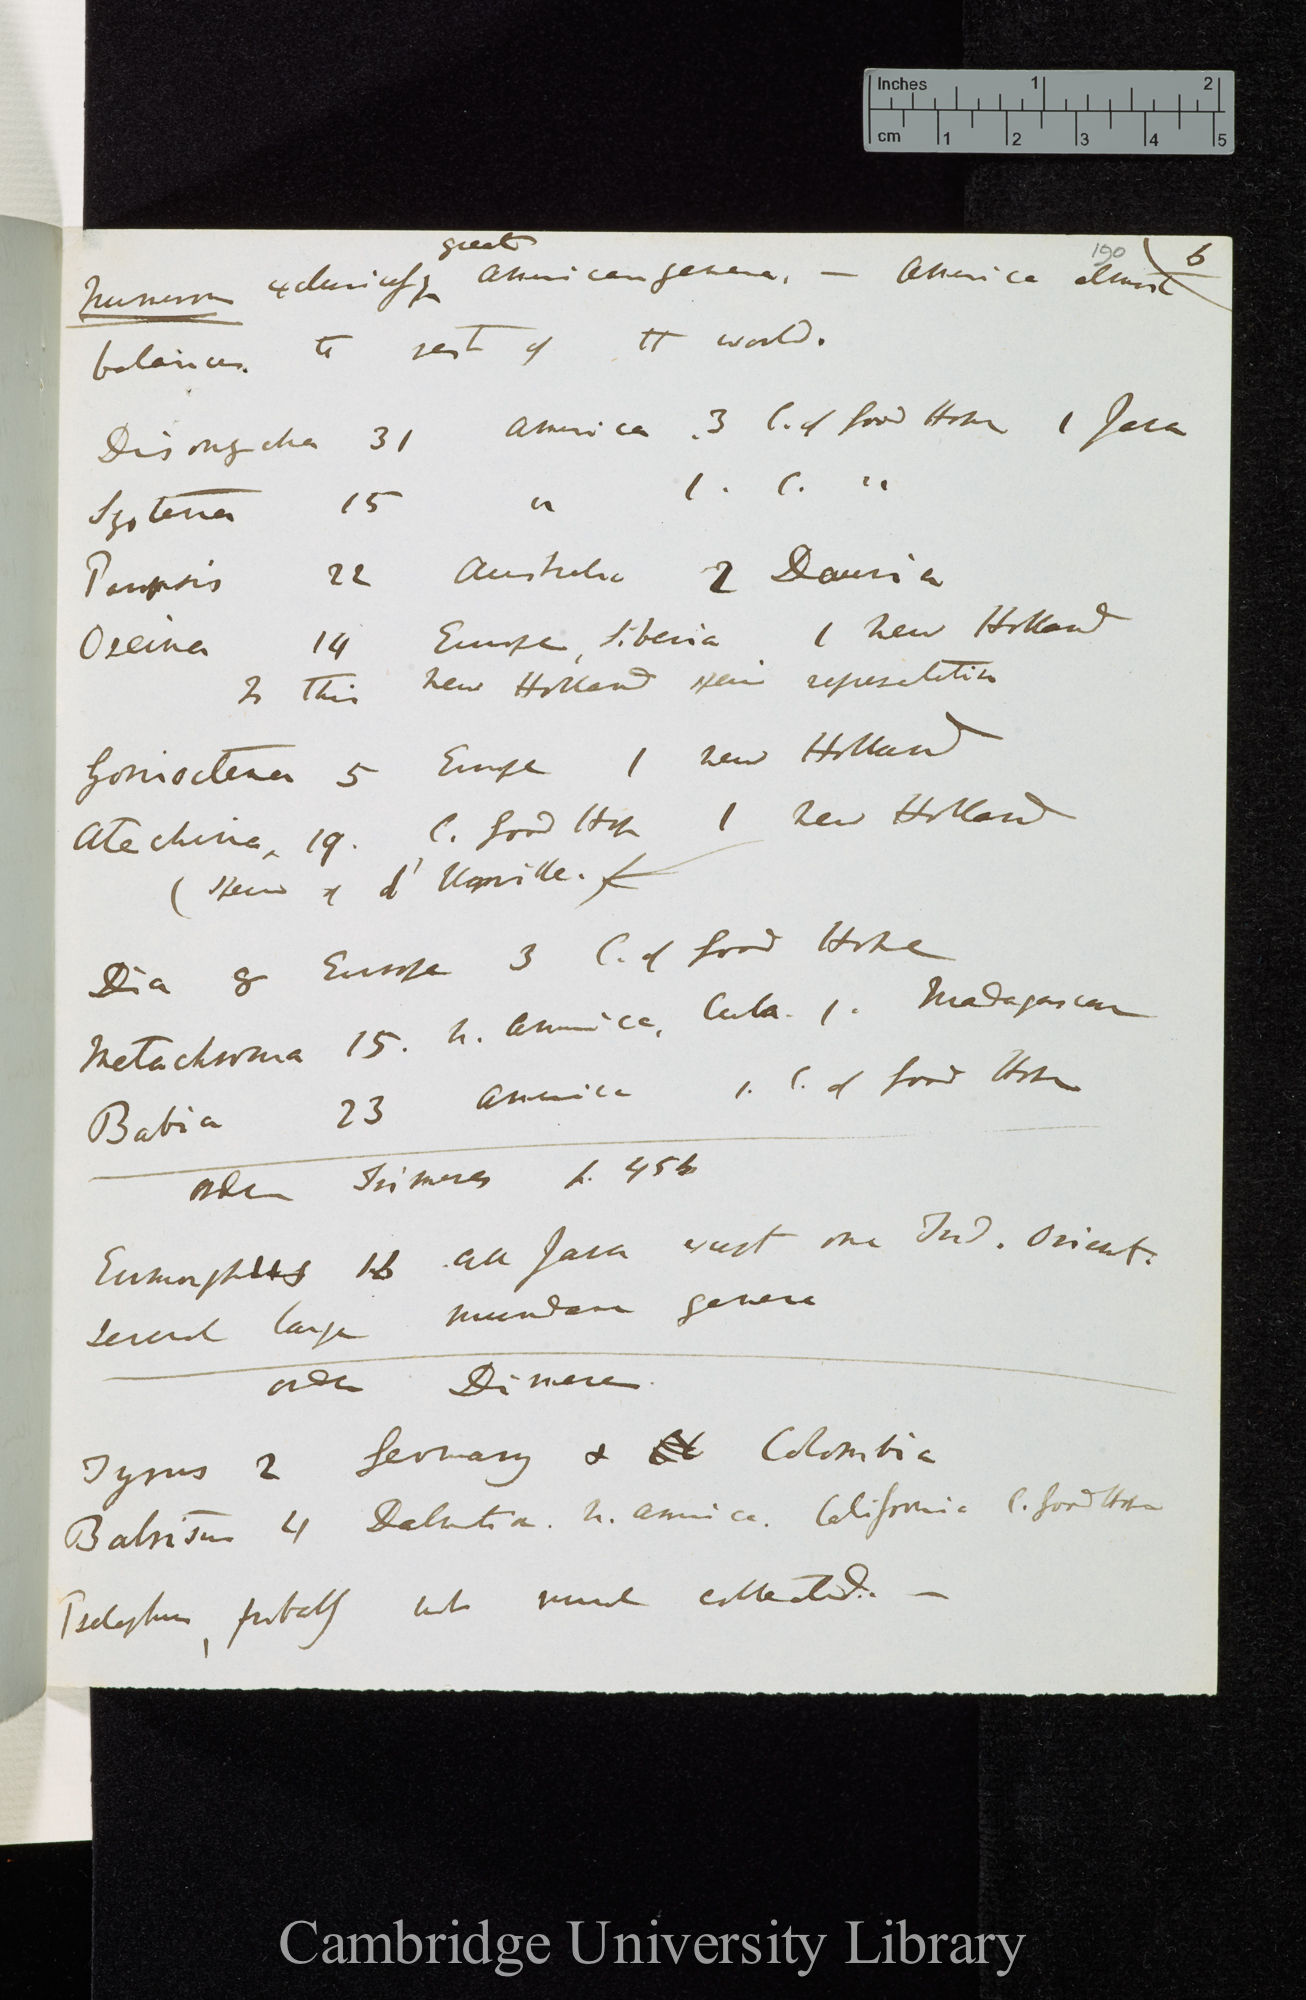 Inches 1 2
cm 1 2 3 4 5
190 6
great
Numerous exclusively American genera. — America almost
balances the rest of the world.
Disonycha 31 America 3 C. of Good Hope 1 Java
15 " 1. C. "
Paropsis 22 Australia 2 Dauria
Oreina 14 Europe, Siberia 1 New Holland
Is this New Holland species representative
Gonioctena 5 Europe 1 New Holland
19. C. Good Hope 1 New Holland
( Species of d'Urville.
Dia 8 Europe 3 C. of Good Hope
Metachroma 15. N. America, Cuba. 1. Madagascar
Babia 23 America 1. C. of Good Hope
order Trimeres p. 456
Eumorphus 16 all Java except one Ind. Orient.
several large mundane genera
order Dimera
Tyrus 2 Germany & Colombia
4 Dalmatia. N. America. California C. Good Hope
Pselaphus, probably not much collected. —
Cambridge University Library